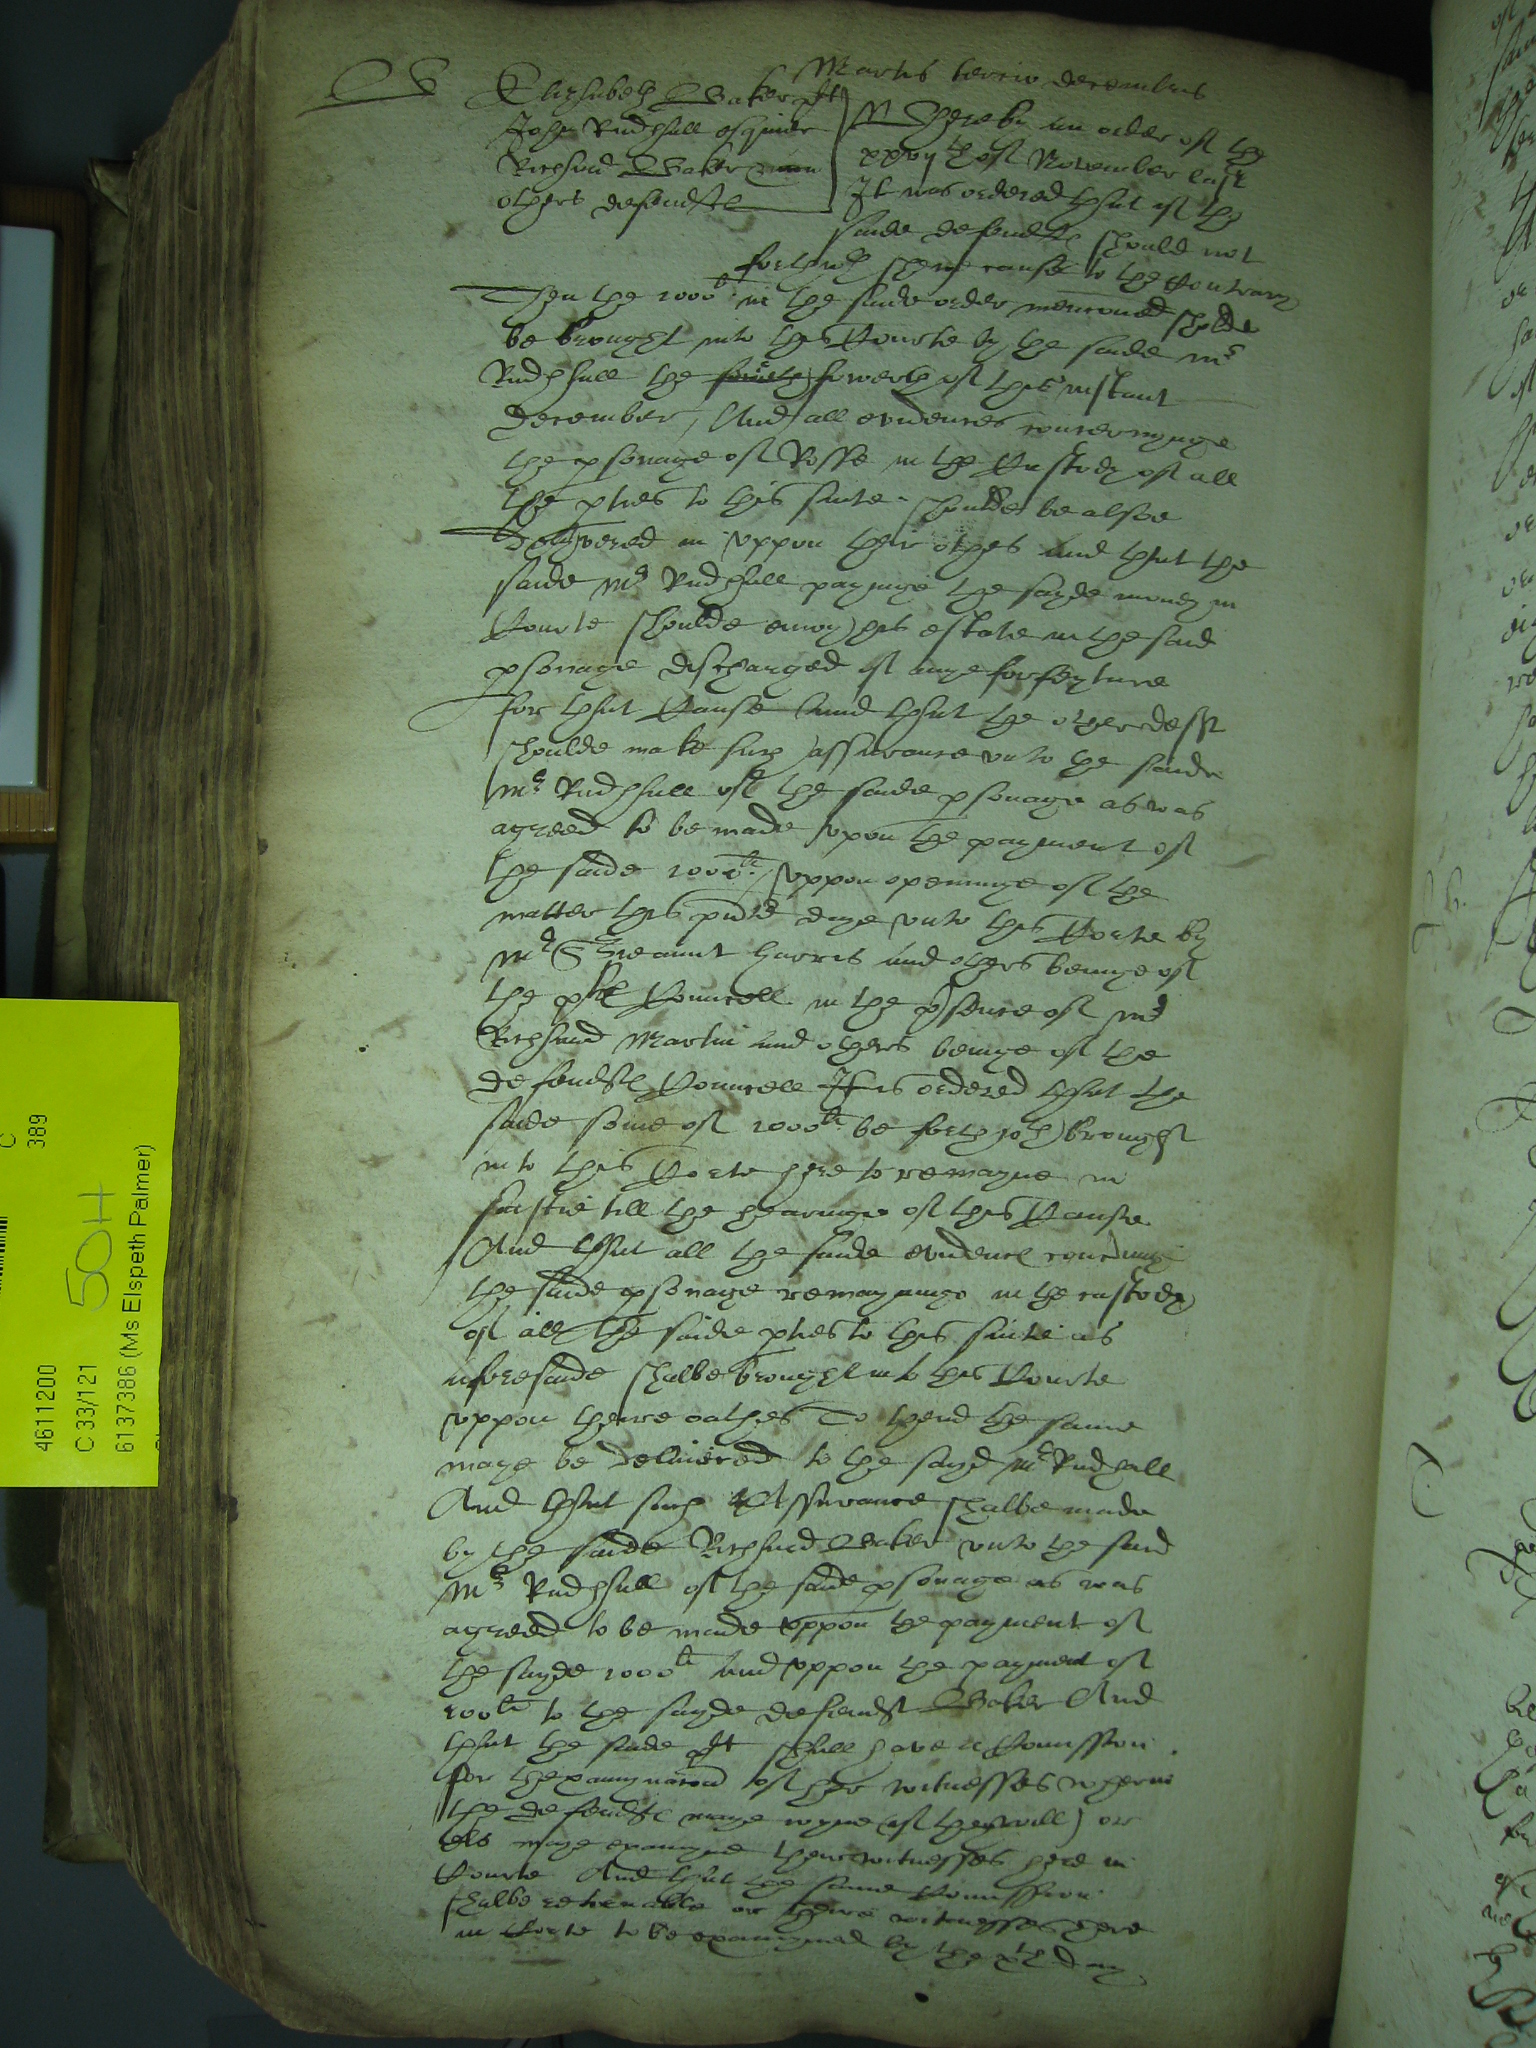 Martis tercio decembris
Elizabeth Baker plt
John Rudhall esquier
Richard Baker and
others defendtes
Whereby an order of the
xxvijth of November last
It was ordered that if the
saide defendtes should not
forthwth shewe cause to the Contrary
Then the 1000li in the saide order mencioned sholde
be brought into this Courte by the saide mr
Rudhall the fowerth of this instant
december, And all evidences concernynge
the psonage of Rosse in the Custody of all
the pties to this suite shoulde be alsoe
delyvered in uppon their othes and that the
saide Mr Rudhall payinge the sayde money in
Courte shoulde enioy his estate in the said
psonage discharged of anye forfeyture
for that Cause And that the other defts
shoulde make such assurance unto the saide
Mr Rudhall of the saide psonage as was
agreed to be made upon the payment of
the saide 1000li. Uppon openinge of the
matter this pnte daye unto this Corte by
Mr Srieaunt Harris and others beinge of
the pltes Councell in the psence of Mr
Richard Martin and others beinge of the
defendtes Councell It is ordered that the
saide some of 1000li be forthwth brought
into this Corte here to remayne in
saftie till the hearinge of this Cause
And that all the saide evidences concerninge
the saide psonage remayninge in the custody
of all the saide pties to this suite as
aforesaide shalbe brought into this Courte
uppon theire oathes To thend the same
maye be delivered to the sayd Mr Rudhall
And that such Assurance shalbe made
by the saide Richard Baker unto the said
Mr Rudhall of the saide psonage as was
agreed to be made uppon the payment of
the sayde 1000li And uppon the payment of
100li to the sayde defendt Baker And
that the saide plt shall have a Comission
for thexamynacion of her witnesses wherein
the defendtes maye ioyne (if they will) or
els maye examyne their witnesses here in
Courte And that the same Comission
shalbe retornable or theire witnesses here
in Corte to be examyned by the xth day
4611200
C 33/121
6137386 (Ms Elspeth Palmer)
50H
C
389